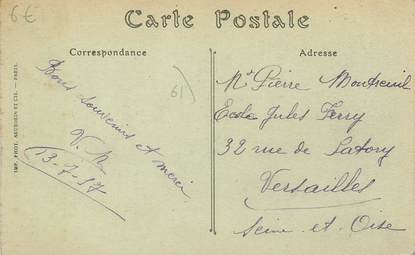 6€
Carte Postale
Correspondance
Adresse
IMP. PHOT. NEURDEIN ET CIE. - PARIS.
61
Bons souvenirs et merci
V. M
13-7-17
Mr Pierre Montreuil
Ecole Jules Ferry
32 rue de Satory
Versailles
Seine-et-Oise